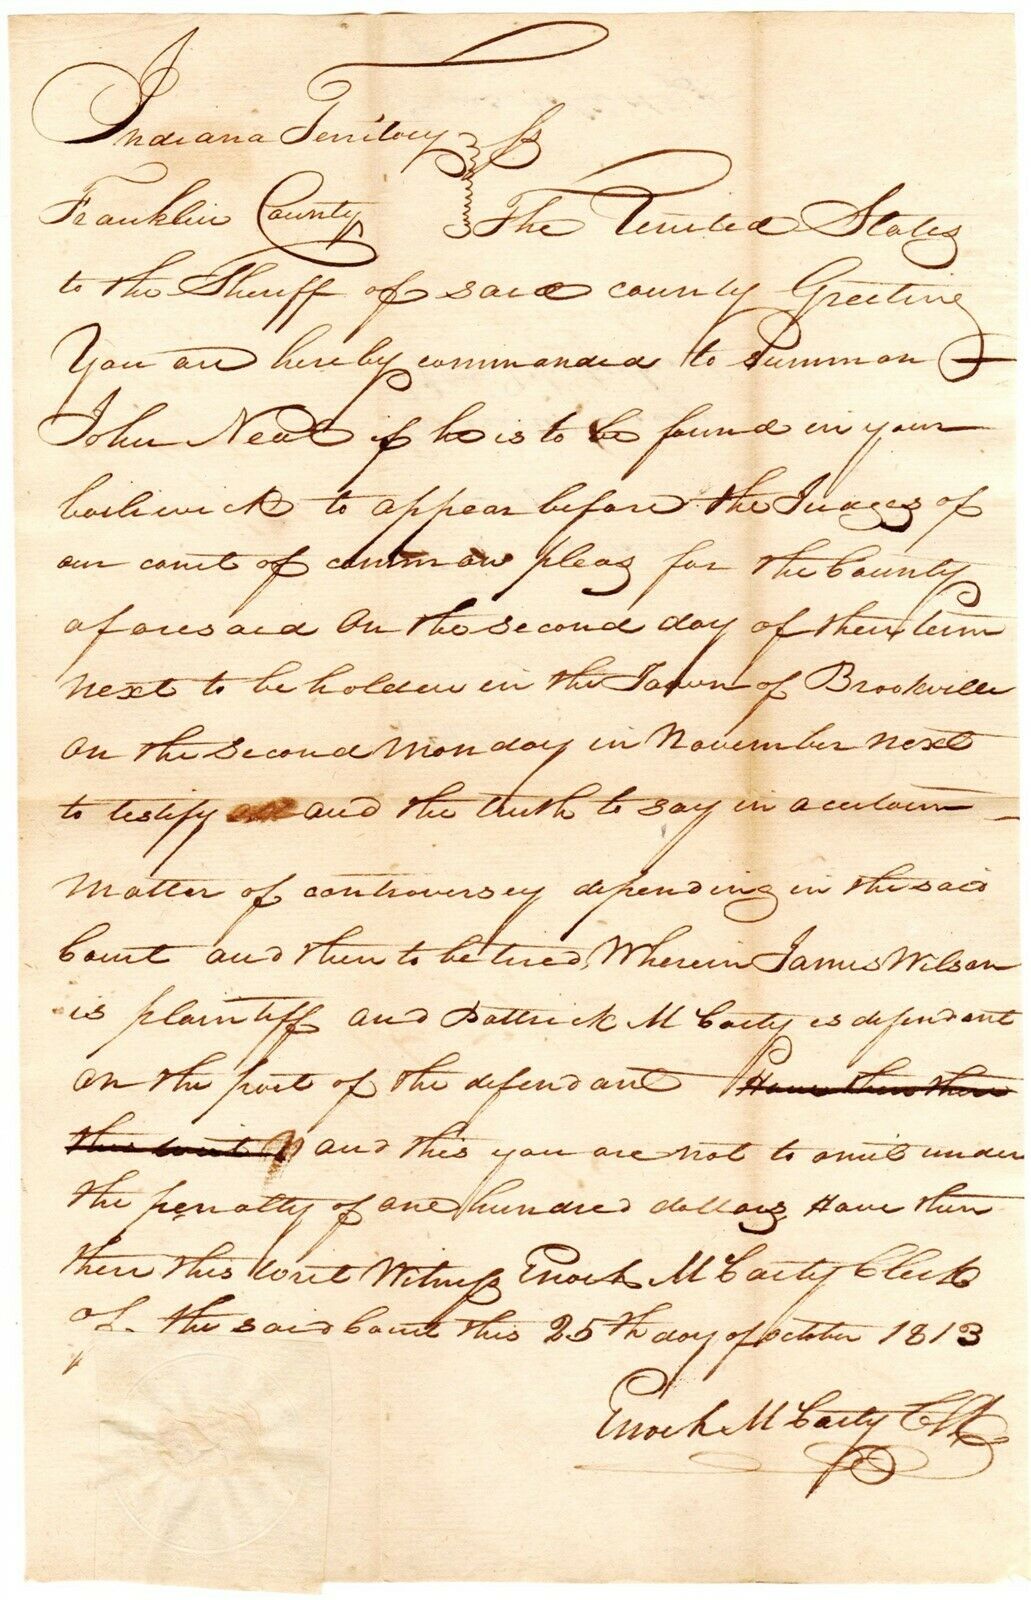 Indiana Territory } ss
Franklin County } The United States
to the Sheriff of said county Greeting
You are hereby commanded to Summon
John Neal if he is to be found in your
bailiwick to appear before the Judges of
our court of common pleas for the County
aforesaid On the second day of their term
next to be holden in the Town of Brookville
On the second Monday in November next
to testify and the truth to say in a certain
Matter of controversey depending in the said
Court and then to be tried, Wherein James Wilson
is plaintiff and Pattrick McCarty is defendant
on the part of the defendant Have then there
this writ and this you are not to omit under
the penalty of one hundred dollars, Have then
there this writ Witness Enoch McCarty Clerk
of the said Court this 25th day of october 1813
Enoch McCarty Clk